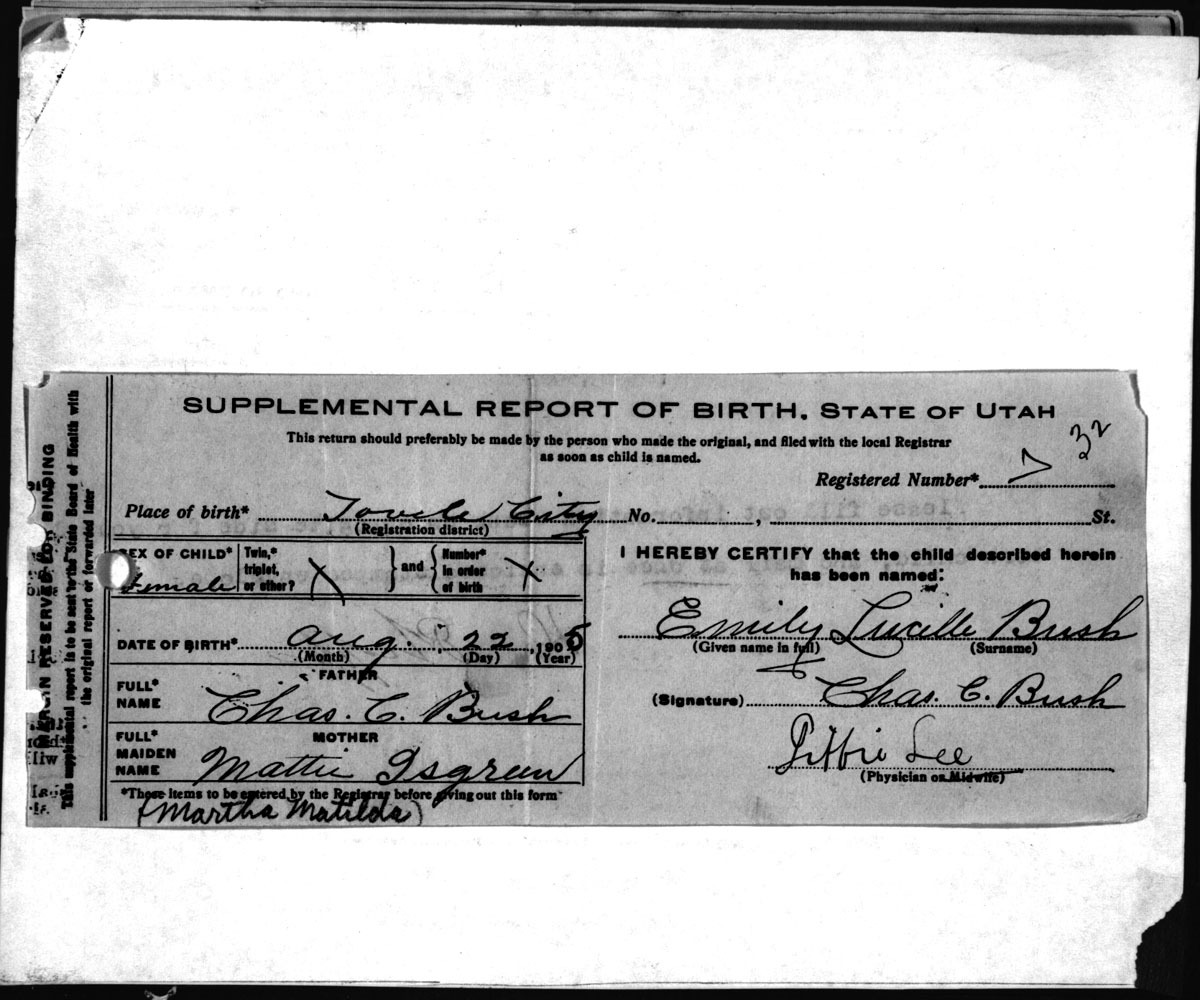 SUPPLEMENTAL REPORT OF BIRTH. STATE OF UTAH
This return should preferably be made by the person who made the original, and filed with the local Registrar
as soon as child is named.
32
Registered Number* 7
Place of birth* Tooele City No. , St.
(Registration district)
SEX OF CHILD* Female
Twin,* triplet, or other? X
and
Number* in order of birth X
DATE OF BIRTH* Aug. 22, 1905
(Month) (Day) (Year)
FATHER
FULL* NAME Chas. C. Bush
MOTHER
FULL* MAIDEN NAME Mattie Isgreen
*These items to be entered by the Registrar before giving out this form
(Martha Matilda)
I HEREBY CERTIFY that the child described herein
has been named:
Emily Lucille Bush
(Given name in full) (Surname)
(Signature) Chas. C. Bush
Lee
(Physician or Midwife)
MARGIN RESERVED FOR BINDING
This supplemental report is to be sent to the State Board of Health with
the original report or forwarded later